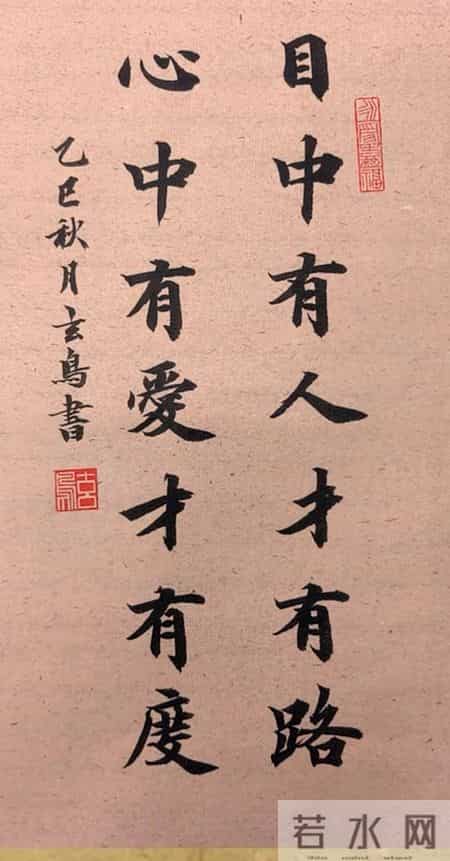 目中有人才有路
心中有愛才有度
乙巳秋月玄鳥書
若水网